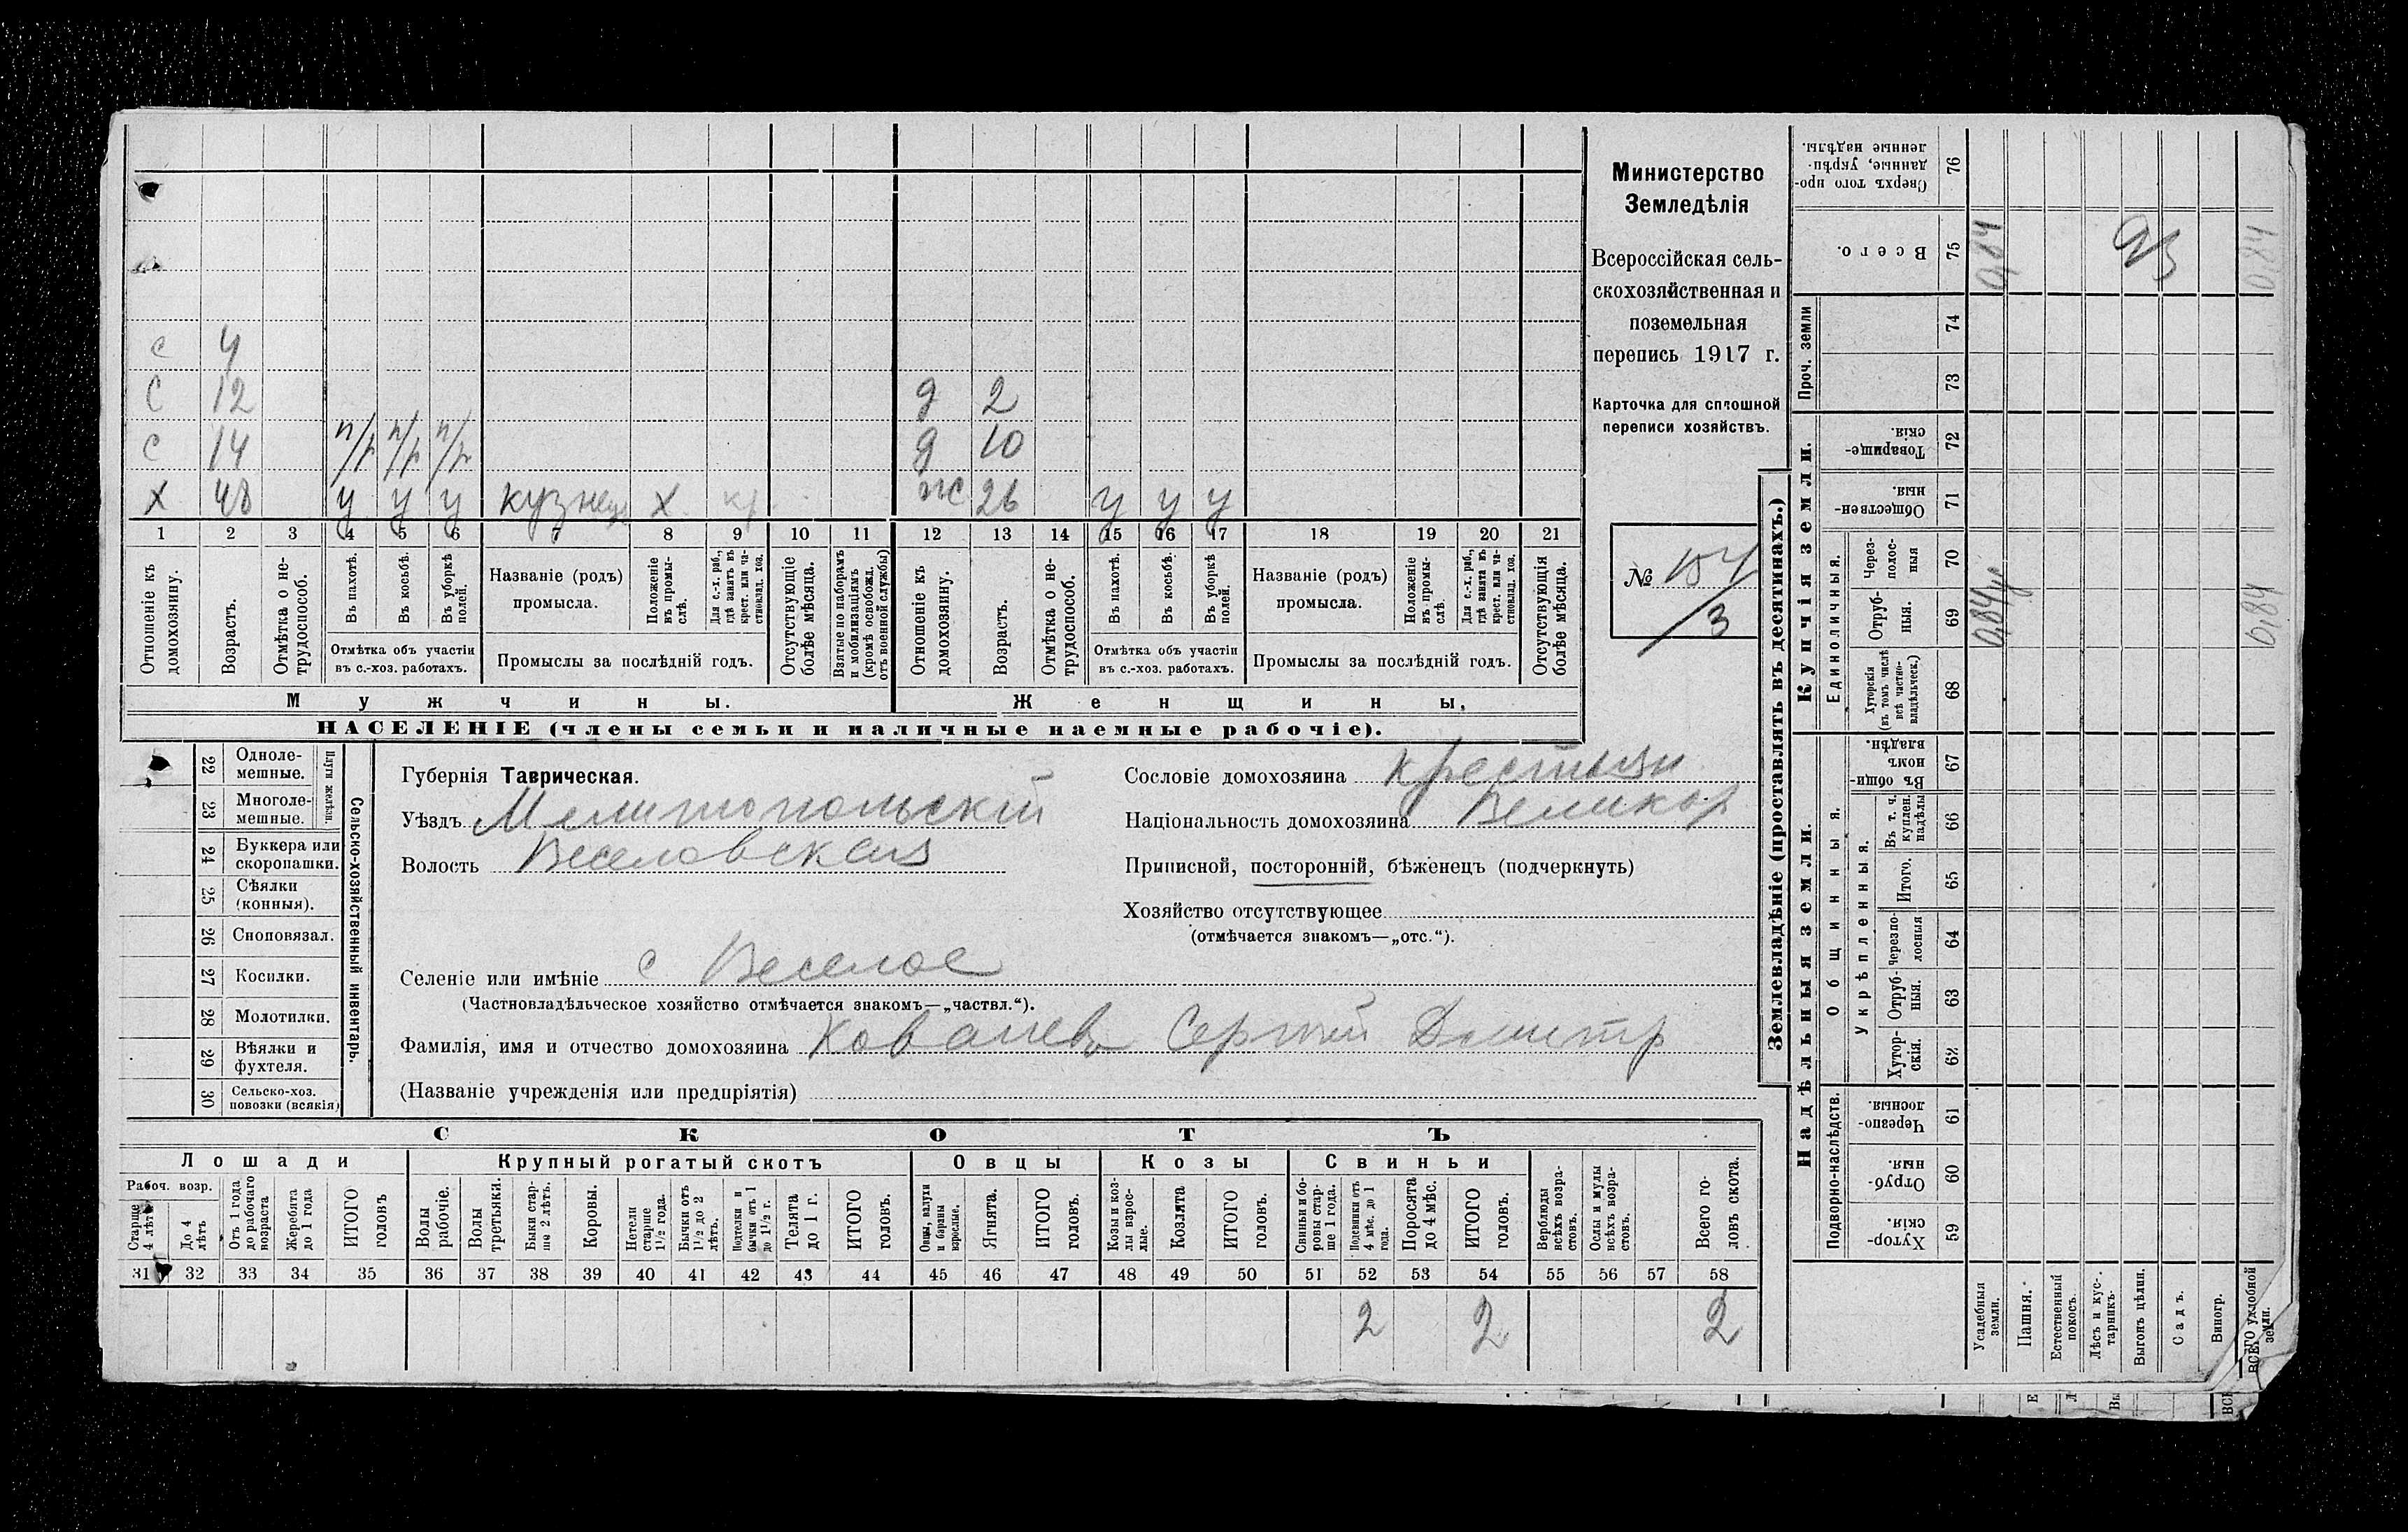 с 4
с 12 д 2
с 14 п/р п/р п/р д 10
х 48 у у у кузнец х кр. ж 26 у у у
1 2 3 4 5 6 7 8 9 10 11 12 13 14 15 16 17 18 19 20 21
Отношеніе къ домохозяину.
Возрастъ.
Отмѣтка о не-
трудоспособ.
Въ пахотѣ.
Въ косьбѣ.
Въ уборкѣ
полей.
Отмѣтка объ участіи
въ с.-хоз. работахъ.
Названіе (родъ)
промысла.
Положеніе
въ промы-
слѣ.
Для с.-х. раб.,
гдѣ занятъ въ
крест. или ча-
стновлад. хоз.
Промыслы за послѣдній годъ.
Отсутствующіе
болѣе мѣсяца.
Взятые по наборамъ
и мобилизаціямъ
(кромѣ освобожд.
отъ военной службы)
Отношеніе къ
домохозяину.
Возрастъ.
Отмѣтка о не-
трудоспособ.
Въ пахотѣ.
Въ косьбѣ.
Въ уборкѣ
полей.
Отмѣтка объ участіи
въ с.-хоз. работахъ.
Названіе (родъ)
промысла.
Положеніе
въ промы-
слѣ.
Для с.-х. раб.,
гдѣ занята въ
крест. или ча-
стновлад. хоз.
Промыслы за послѣдній годъ.
Отсутствующія
болѣе мѣсяца.
Мужчины. Женщины,
НАСЕЛЕНІЕ (члены семьи и наличные наемные рабочіе).
Министерство
Земледѣлія
Всероссійская сель-
скохозяйственная и
поземельная
перепись 1917 г.
Карточка для сплошной
переписи хозяйствъ.
№ 154
/3
22 Одноле-
мешные.
23 Многоле-
мешные.
Плуги желѣзн.
24 Буккера или
скоропашки.
25 Сѣялки
(конныя).
26 Сноповязал.
27 Косилки.
28 Молотилки.
29 Вѣялки и
фухтеля.
30 Сельско-хоз.
повозки (всякія)
Сельско-хозяйственный инвентарь.
Губернія Таврическая.
Уѣздъ Мелитопольскій
Волость Веселовская
Сословіе домохозяина крестьян
Національность домохозяина Великор
Приписной, посторонній, бѣженецъ (подчеркнуть)
Хозяйство отсутствующее
(отмѣчается знакомъ—„отс.“).
Селеніе или имѣніе с Веселое
(Частновладѣльческое хозяйство отмѣчается знакомъ—„частвл.“).
Фамилія, имя и отчество домохозяина Ковалевъ Сергѣй Дмитр
(Названіе учрежденія или предпріятія)
СКОТЪ
Лошади Крупный рогатый скотъ Овцы Козы Свиньи
Рабоч. возр.
Старше
4 лѣтъ
До 4
лѣтъ
Отъ 1 года
до рабочаго
возраста
Жеребята
до 1 года
ИТОГО
головъ
Волы
рабочіе.
Волы
третьяки.
Быки стар-
ше 2 лѣтъ.
Коровы.
Нетели
старше
1½ года.
Бычки отъ
1½ до 2
лѣтъ.
Подтелки и
бычки отъ 1
до 1½ г.
Телята
до 1 г.
ИТОГО
головъ.
Овцы, валухи
и бараны
взрослые.
Ягнята.
ИТОГО
головъ.
Козы и коз-
лы взрос-
лые.
Козлята
ИТОГО
головъ.
Свиньи и бо-
ровы стар-
ше 1 года.
Подсвинки отъ
4 мѣс. до 1
года.
Поросята
до 4 мѣс.
ИТОГО
головъ.
Верблюды
всѣхъ возра-
стовъ.
Ослы и мулы
всѣхъ возра-
стовъ.
Всего го-
ловъ скота.
31 32 33 34 35 36 37 38 39 40 41 42 43 44 45 46 47 48 49 50 51 52 53 54 55 56 57 58
2 2 2
Землевладѣніе (проставлять въ десятинахъ.)
Надѣльныя земли. Купчія земли.
Подворно-наслѣдств.
Общинныя.
Укрѣпленныя.
Единоличныя.
Проч. земли
Хутор-
скія. 59
Отруб-
ныя. 60
Черезпо-
лосныя. 61
Хутор-
скія. 62
Отруб-
ныя. 63
Черезпо-
лосныя 64
Итого. 65
Въ т. ч.
куплен.
надѣлы 66
Въ общин-
номъ
владѣн. 67
Хуторскія
(въ томъ числѣ
всѣ частно-
владѣльческ.) 68
Отруб-
ныя. 69
Через-
полос-
ныя 70
Обществен-
ныя. 71
Товарище-
скія. 72
73
74
Всего. 75
Сверхъ того про-
данные, укрѣп-
ленные надѣлы. 76
Усадебныя
земли.
0,84
0,84
Пашня.
Естественный
покосъ.
Лѣсъ и кус-
тарникъ.
Выгонъ цѣлин.
Садъ.
Виногр.
ВСЕГО удобной
земли.
0,84
0,84